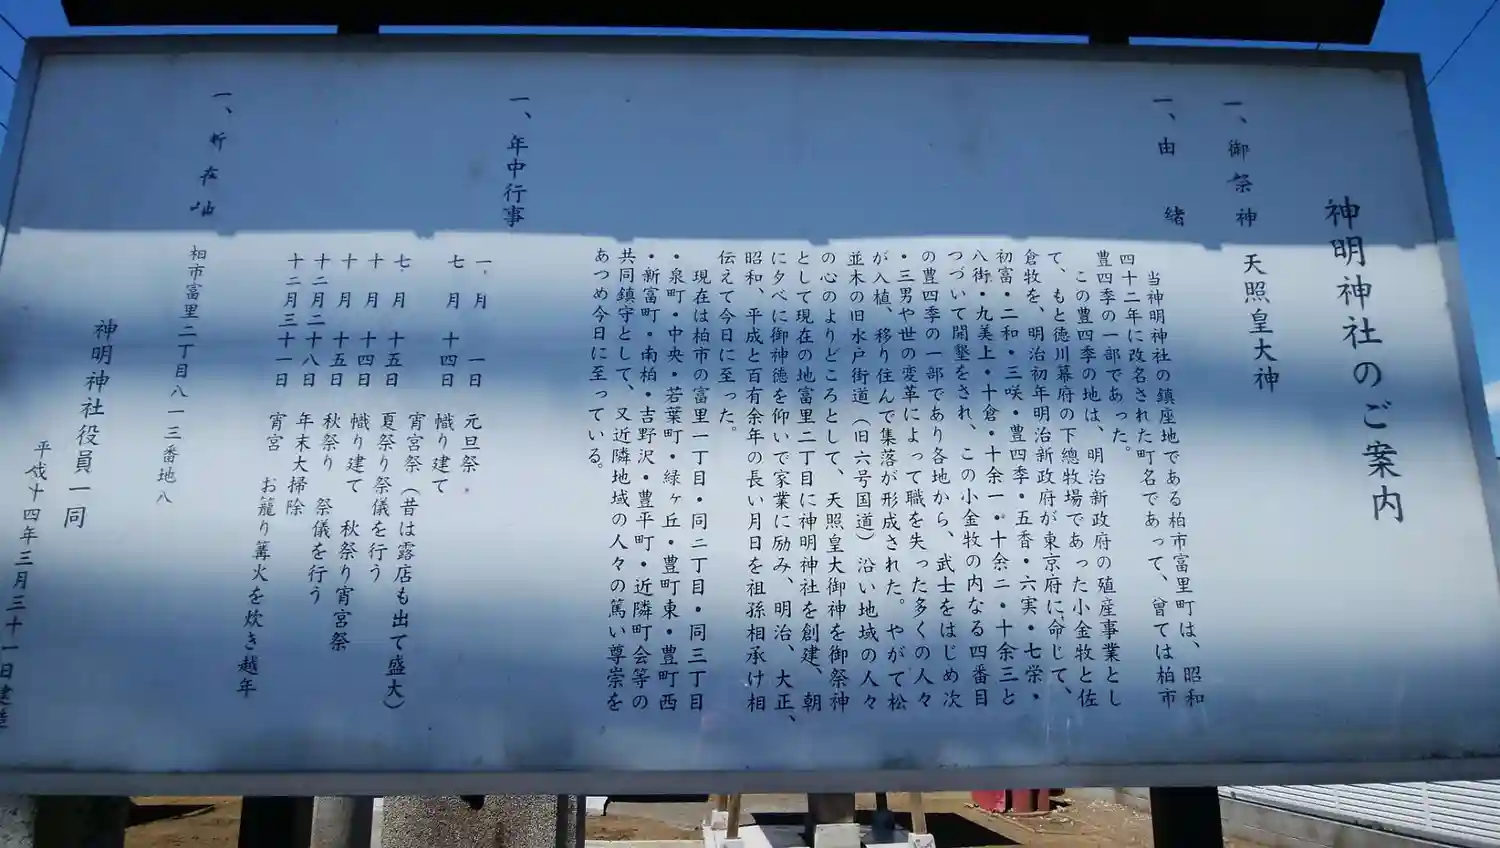 神明神社のご案内
一、御祭神 天照皇大神
一、由緒
当神明神社の鎮座地である柏市富里町は、昭和
四十二年に改名された町名であって、曾ては柏市
豊四季の一部であった。
この豊四季の地は、明治新政府の殖産事業とし
て、もと徳川幕府の下總牧場であった小金牧と佐
倉牧を、明治初年明治新政府が東京府に命じて、
初富・二和・三咲・豊四季・五香・六実・七栄・
八街・九美上・十倉・十余一・十余二・十余三と
つづいて開墾をされ、この小金牧の内なる四番目
の豊四季の一部であり各地から、武士をはじめ次
・三男や世の変革によって職を失った多くの人々
が入植、移り住んで集落が形成された。やがて松
並木の旧水戸街道（旧六号国道）沿い地域の人々
の心のよりどころとして、天照皇大御神を御祭神
として現在の地富里二丁目に神明神社を創建、朝
に夕べに御神徳を仰いで家業に励み、明治、大正、
昭和、平成と百有余年の長い月日を祖孫相承け相
伝えて今日に至った。
現在は柏市の富里一丁目・同二丁目・同三丁目
・泉町・中央・若葉町・緑ヶ丘・豊町東・豊町西
・新富町・南柏・吉野沢・豊平町・近隣町会等の
共同鎮守として、又近隣地域の人々の篤い尊崇を
あつめ今日に至っている。
一、年中行事
一月 一日 元旦祭
七月 十四日 幟り建て
宵宮祭（昔は露店も出て盛大）
七月 十五日 夏祭り祭儀を行う
十月 十四日 幟り建て 秋祭り宵宮祭
十月 十五日 秋祭り 祭儀を行う
十二月二十八日 年末大掃除
十二月三十一日 宵宮 お籠り篝火を炊き越年
一、所在地
柏市富里二丁目八一三番地八
神明神社役員一同
平成十四年三月三十一日建造